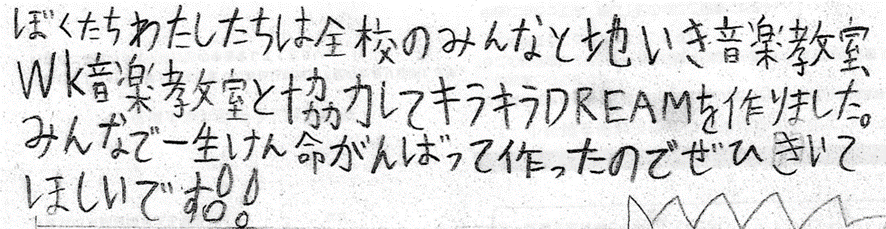 ぼくたちわたしたちは全校のみんなと地いき音楽教室
Wk音楽教室と協力してキラキラDREAMを作りました。
みんなで一生けん命がんばって作ったのでぜひきいて
ほしいです!!